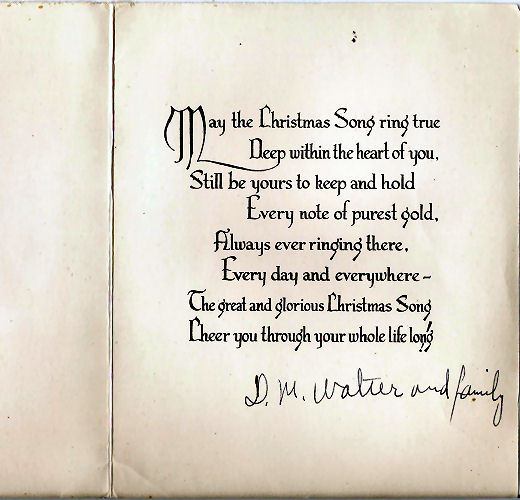 May the Christmas Song ring true
Deep within the heart of you,
Still be yours to keep and hold
Every note of purest gold,
Always ever ringing there,
Every day and everywhere–
The great and glorious Christmas Song
Cheer you through your whole life long!
D. M. Walter and family